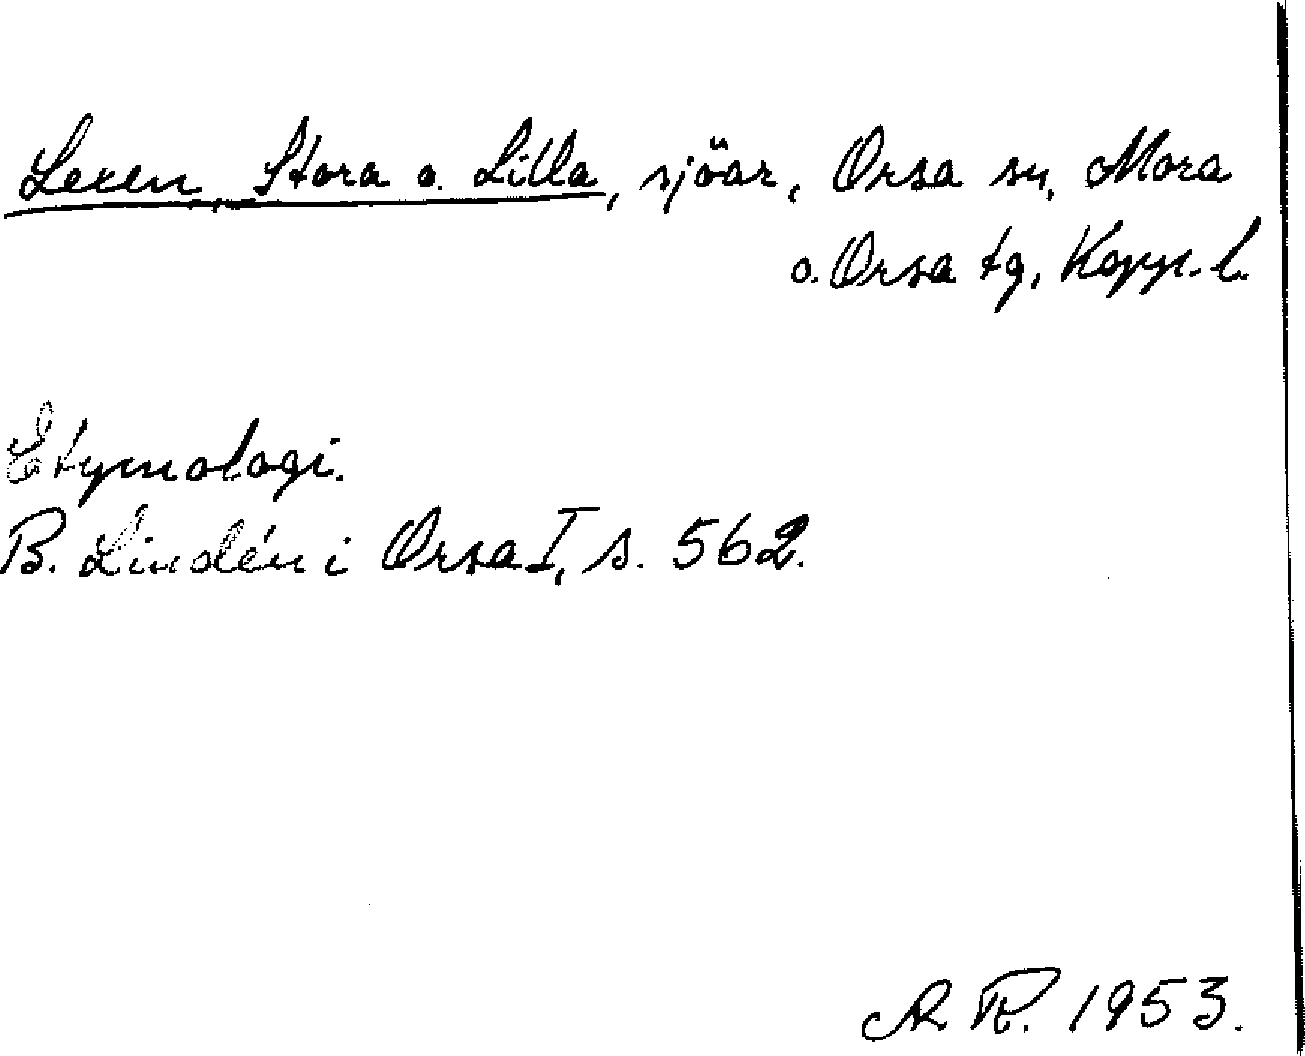 Lexen, Stora o. Lilla, sjöar, Orsa sn, Mora
o. Orsa tg, Kopp. l.
Etymologi.
B. Lindén i Orsa I, s. 562.
R. 1953.